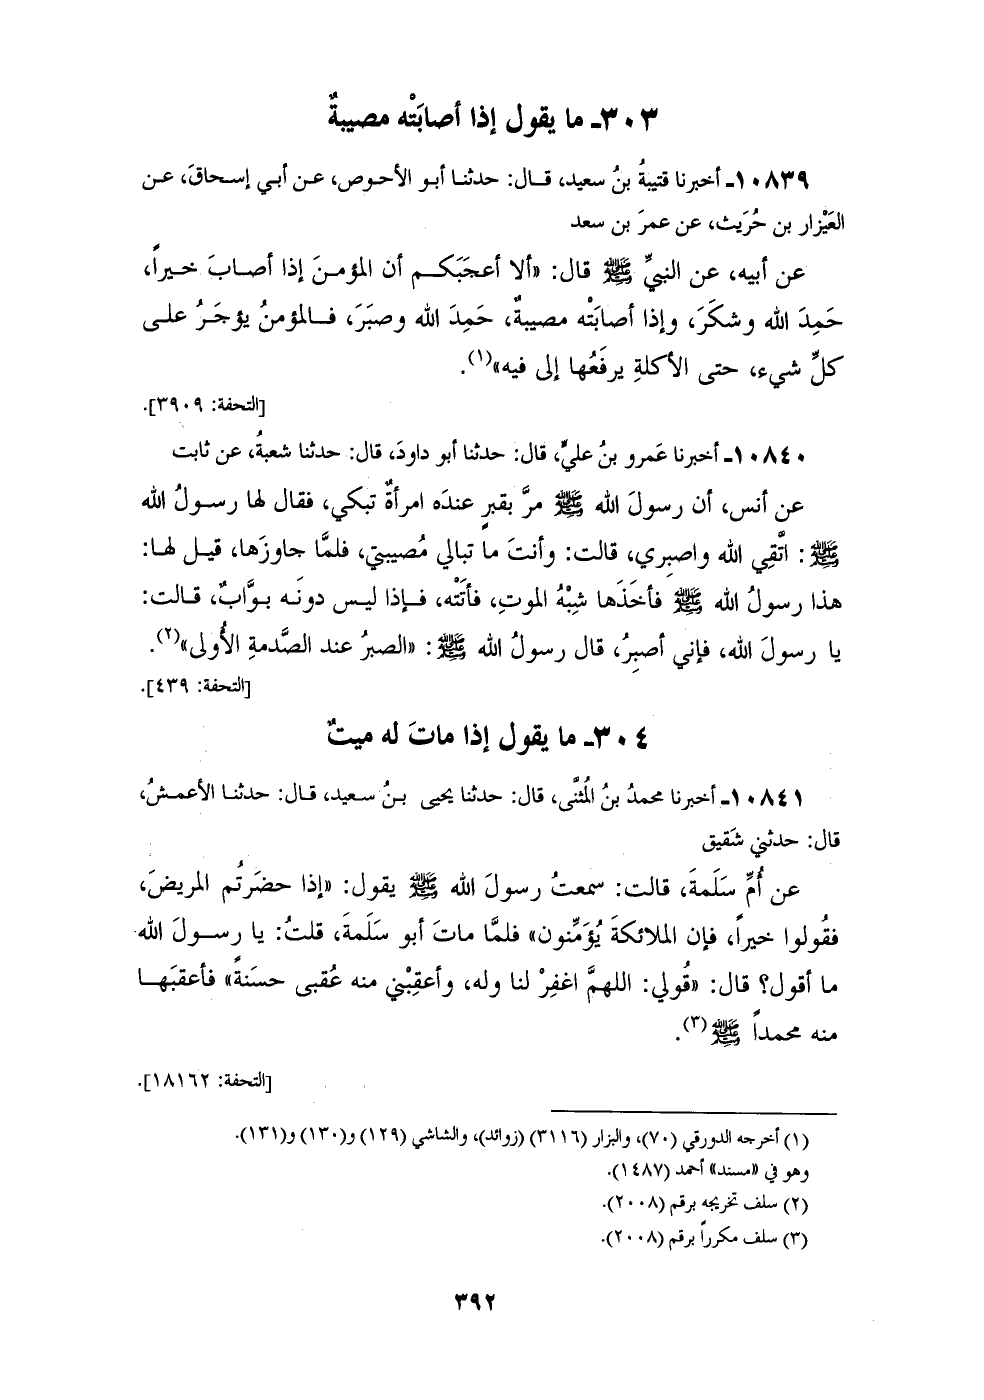 ٣٠٣ـ ما يقول إذا أصابَتْه مصيبةٌ
١٠٨٣٩ـ أخبرنا قتيبةُ بنُ سعيد، قال: حدثنا أبو الأحوص، عن أبي إسحاقَ، عن
العَيْزار بن حُرَيث، عن عمرَ بن سعد
عن أبيه، عن النبيِّ ﷺ قال: «ألا أعجَبَكم أن المؤمنَ إذا أصابَ خيراً،
حَمِدَ الله وشكَرَ، وإذا أصابَتْه مصيبةٌ، حَمِدَ الله وصبَرَ، فالمؤمنُ يؤجَرُ على
كلِّ شيء، حتى الأكلةِ يرفَعُها إلى فيه»(١).
[التحفة: ٣٩٠٩].
١٠٨٤٠ـ أخبرنا عَمرو بنُ عليٍّ، قال: حدثنا أبو داودَ، قال: حدثنا شعبةُ، عن ثابت
عن أنس، أن رسولَ الله ﷺ مرَّ بقبرٍ عندَه امرأةٌ تبكي، فقال لها رسولُ الله
ﷺ: اتَّقِي الله واصبِري، قالت: وأنتَ ما تبالي مُصيبتي، فلمَّا جاوزَها، قيل لها:
هذا رسولُ الله ﷺ فأخَذَها شِبْهُ الموتِ، فأتَتْه، فإذا ليس دونَه بوَّابٌ، قالت:
يا رسولَ الله، فإني أصبِرُ، قال رسولُ الله ﷺ: «الصبرُ عند الصَّدمةِ الأُولى»(٢).
[التحفة: ٤٣٩].
٣٠٤ـ ما يقول إذا ماتَ له ميتٌ
١٠٨٤١ـ أخبرنا محمدُ بنُ المُثنَّى، قال: حدثنا يحيى بنُ سعيد، قال: حدثنا الأعمشُ،
قال: حدثني شَقيق
عن أُمِّ سَلَمةَ، قالت: سمعتُ رسولَ الله ﷺ يقول: «إذا حضَرتُم المريضَ،
فقُولوا خيراً، فإن الملائكةَ يُؤَمِّنون» فلمَّا ماتَ أبو سَلَمةَ، قلتُ: يا رسولَ الله
ما أقول؟ قال: «قُولي: اللهمَّ اغفِرْ لنا وله، وأعقِبْني منه عُقبى حسَنةً» فأعقبَها
منه محمداً ﷺ(٣).
[التحفة: ١٨١٦٢].
(١) أخرجه الدورقي (٧٠)، والبزار (٣١١٦) (زوائد)، والشاشي (١٢٩) و(١٣٠) و(١٣١).
وهو في «مسند» أحمد (١٤٨٧).
(٢) سلف تخريجه برقم (٢٠٠٨).
(٣) سلف مكرراً برقم (٢٠٠٨).
٣٩٢